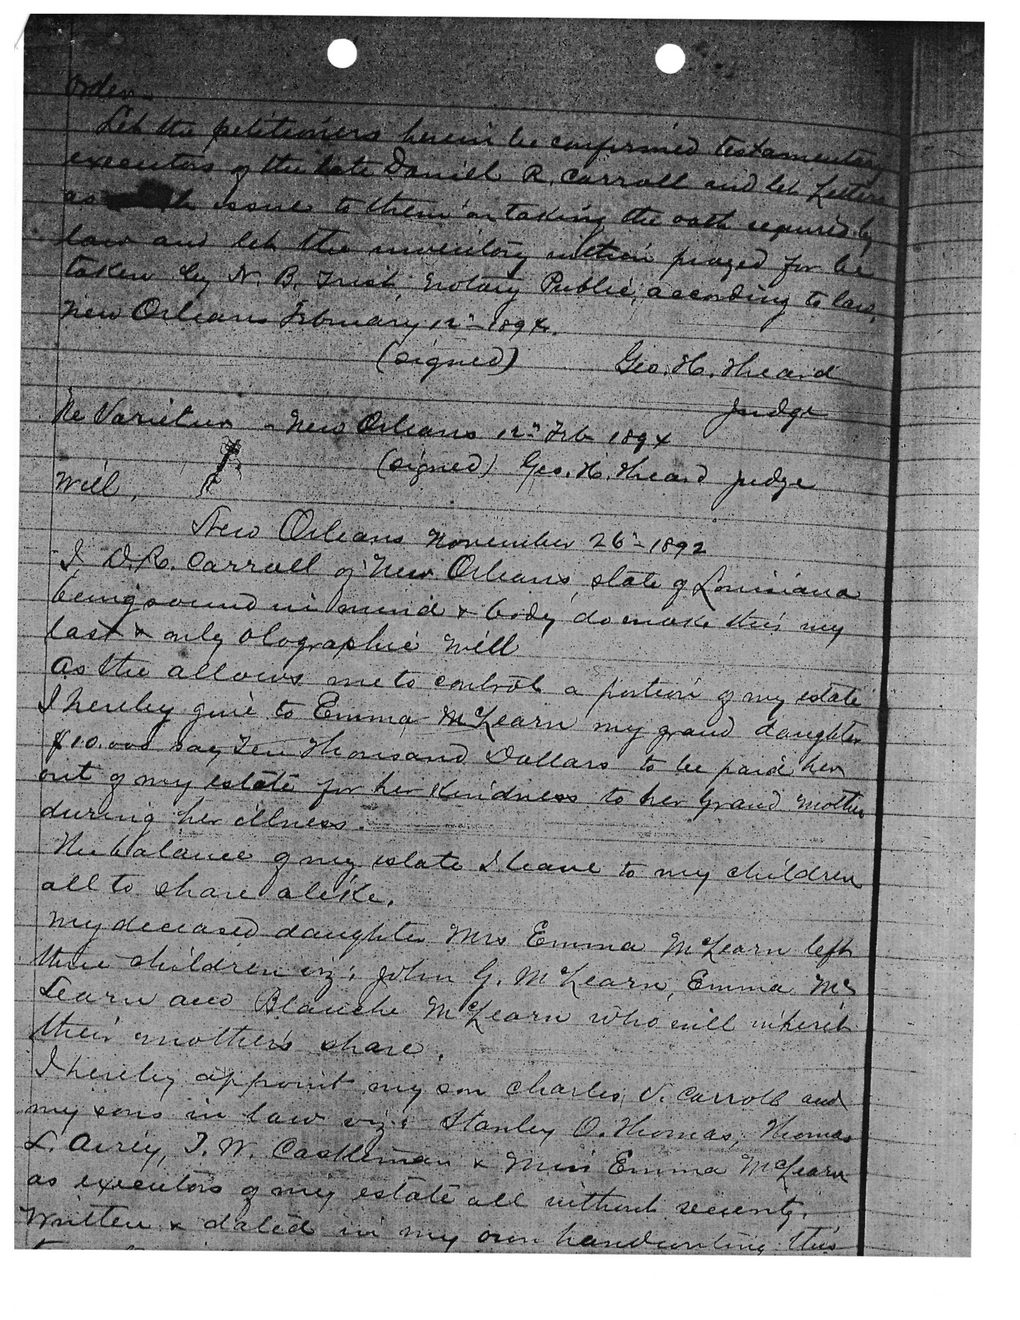 Order.
Let the petitioners herein be confirmed testamentary
executors of the late Daniel R. Carroll and let Letters
as issue to them on taking the oath required by
law and let the inventory within prayed for be
taken by N. B. Trist, Notary Public, according to law,
New Orleans February 12" 1894.
(signed) Geo. H. Theard
Judge
Ne Varietur - New Orleans 12" Feb 1894
(signed) Geo. H. Theard Judge
Will,
New Orleans November 26"-1892
I D.R. Carroll of New Orleans state of Louisiana
being sound in mind & body do make this my
last & only olographic will
As the allows me to control a portion of my estate
I hereby give to Emma McLearn my grand daughter
$10.000 say Ten Thousand Dollars to be paid her
out of my estate for her kindness to her grand mother
during her illness.
The balance of my estate I leave to my children
all to share alike.
My deceased daughter Mrs Emma McLearn left
three children viz: John G. McLearn, Emma Mc
Learn and Blanche McLearn who will inherit
their mother's share.
I hereby appoint my son Charles V. Carroll and
my sons in law viz: Stanley O. Thomas, Thomas
L. Airey, T. W. Castleman & Miss Emma McLearn
as executors of my estate all without security.
Written & dated in my own handwriting this